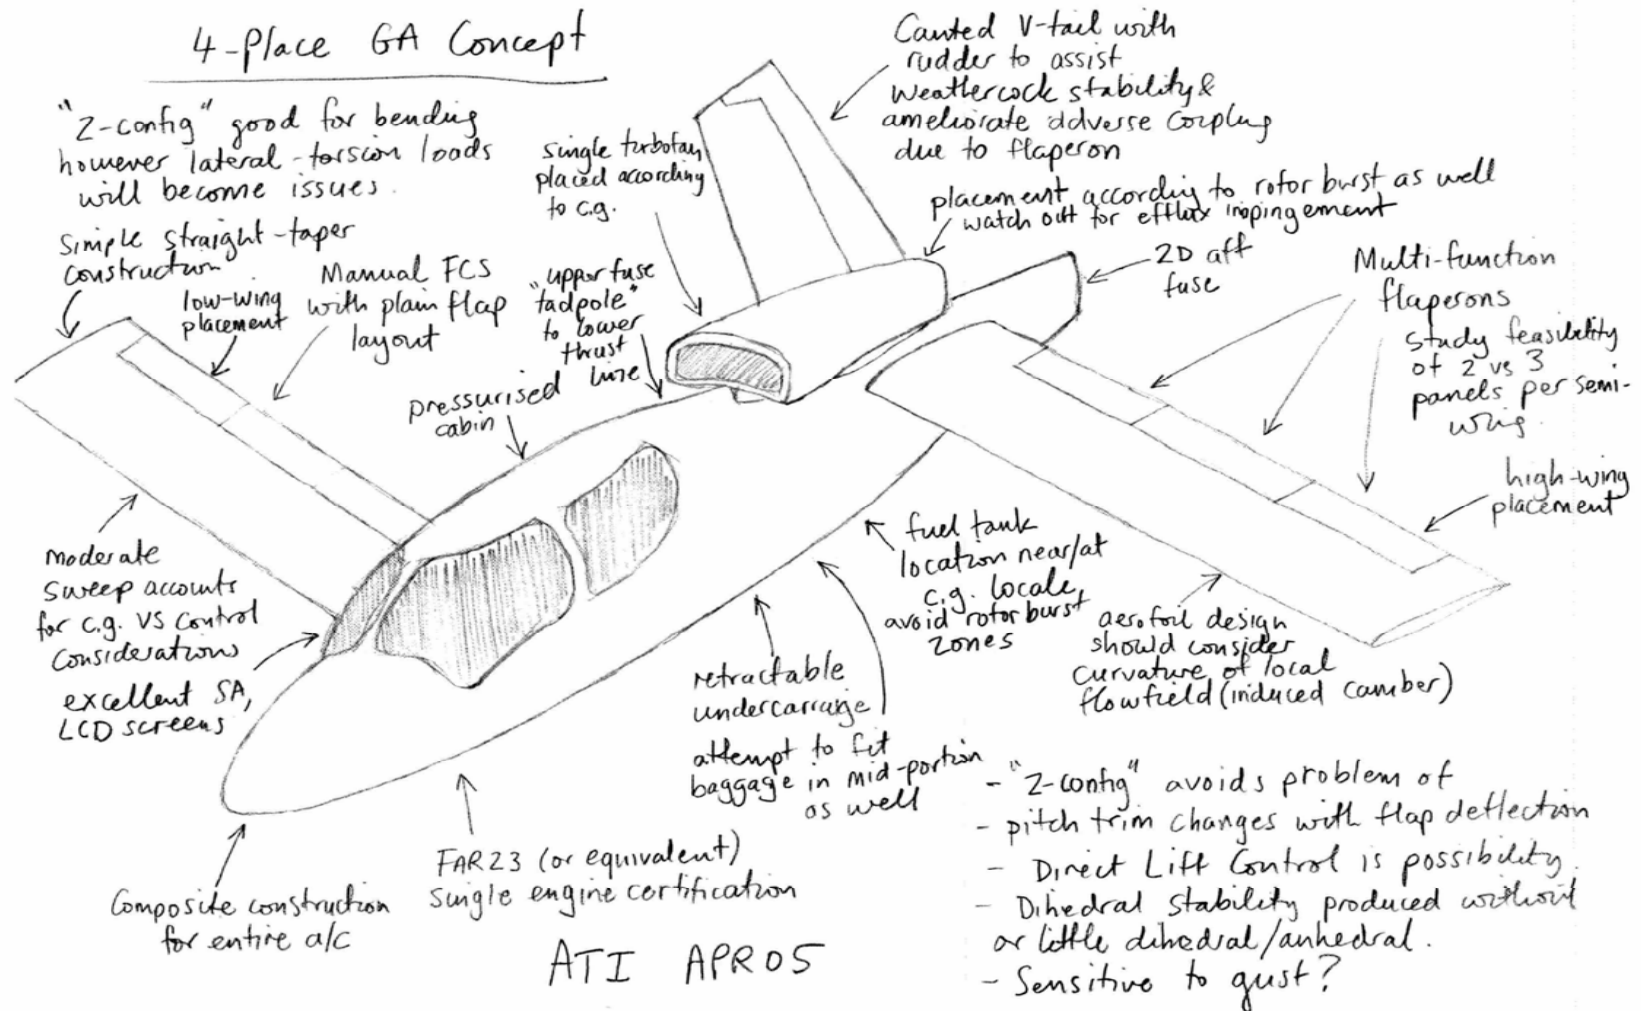 4-Place GA Concept
"Z-config" good for bending
however lateral-torsion loads
will become issues.
simple straight-taper
construction
low-wing
placement
Manual FCS
with plain flap
layout
single turbofan
placed according
to c.g.
"upper fuse
tadpole"
to lower
thrust
line
pressurised
cabin
Canted V-tail with
rudder to assist
weathercock stability &
ameliorate adverse coupling
due to flaperon
placement according to rotor burst as well
watch out for efflux impingement
2D aft
fuse
Multi-function
flaperons
study feasibility
of 2 vs 3
panels per semi-
wing.
high-wing
placement
moderate
sweep accounts
for c.g. vs control
considerations
excellent SA,
LCD screens
fuel tank
location near/at
c.g. locale,
avoid rotor burst
zones
aerofoil design
should consider
curvature of local
flowfield (induced camber)
retractable
undercarraige
attempt to fit
baggage in mid-portion
as well
FAR23 (or equivalent)
single engine certification
Composite construction
for entire a/c
- "Z-config" avoids problem of
- pitch trim changes with flap deflection
- Direct Lift Control is possibility.
- Dihedral stability produced without
or little dihedral/anhedral.
- Sensitive to gust?
ATI APR05